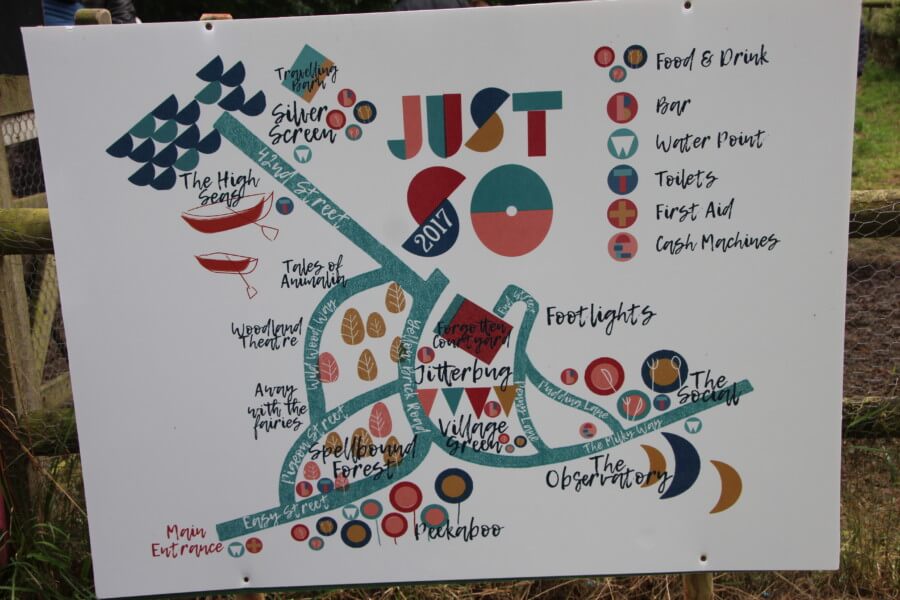 Travelling
Barn
Silver
Screen
42nd Street
The High
Seas
JUST
SO
2017
Food & Drink
Bar
Water Point
Toilets
First Aid
Cash Machines
Tales of
Animalia
Woodland
Theatre
Wild Wood Way
Away
with the
fairies
Yellow Brick Road
Forgotten
Courtyard
Jitterbug
Footlights
Pudding Lane
Penny Lane
The
Social
The Milky Way
Village
Green
Pigeon Street
Spellbound
Forest
The
Observatory
Easy Street
Peekaboo
Main
Entrance